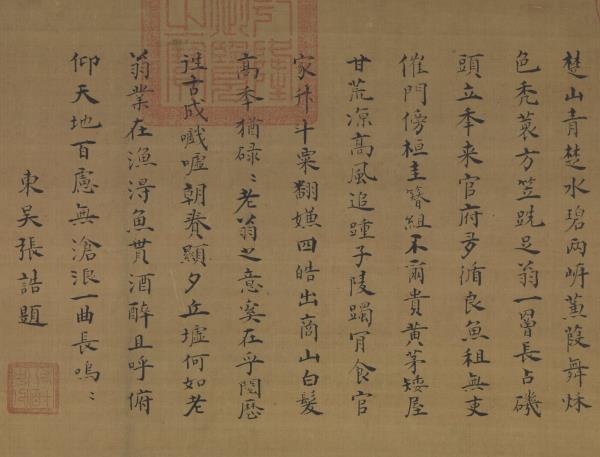 楚山青楚水碧兩岸蒹葭舞秌
色禿蓑方笠跣足翁一罾長占磯
頭立秊来官府多循良魚租無吏
催門傍桓圭簪組不爾貴黄茅矮屋
甘荒涼高風追踵子陵躅肎食官
家升斗粟翻嫌四皓出商山白髮
高秊猶碌〻老翁之意奚在乎閱歷
往古成嘘朝顯夕丘墟何如老
翁業在漁淂魚貰酒醉且呼俯
仰天地百慮無滄浪一曲長嗚〻
東吴張誥題